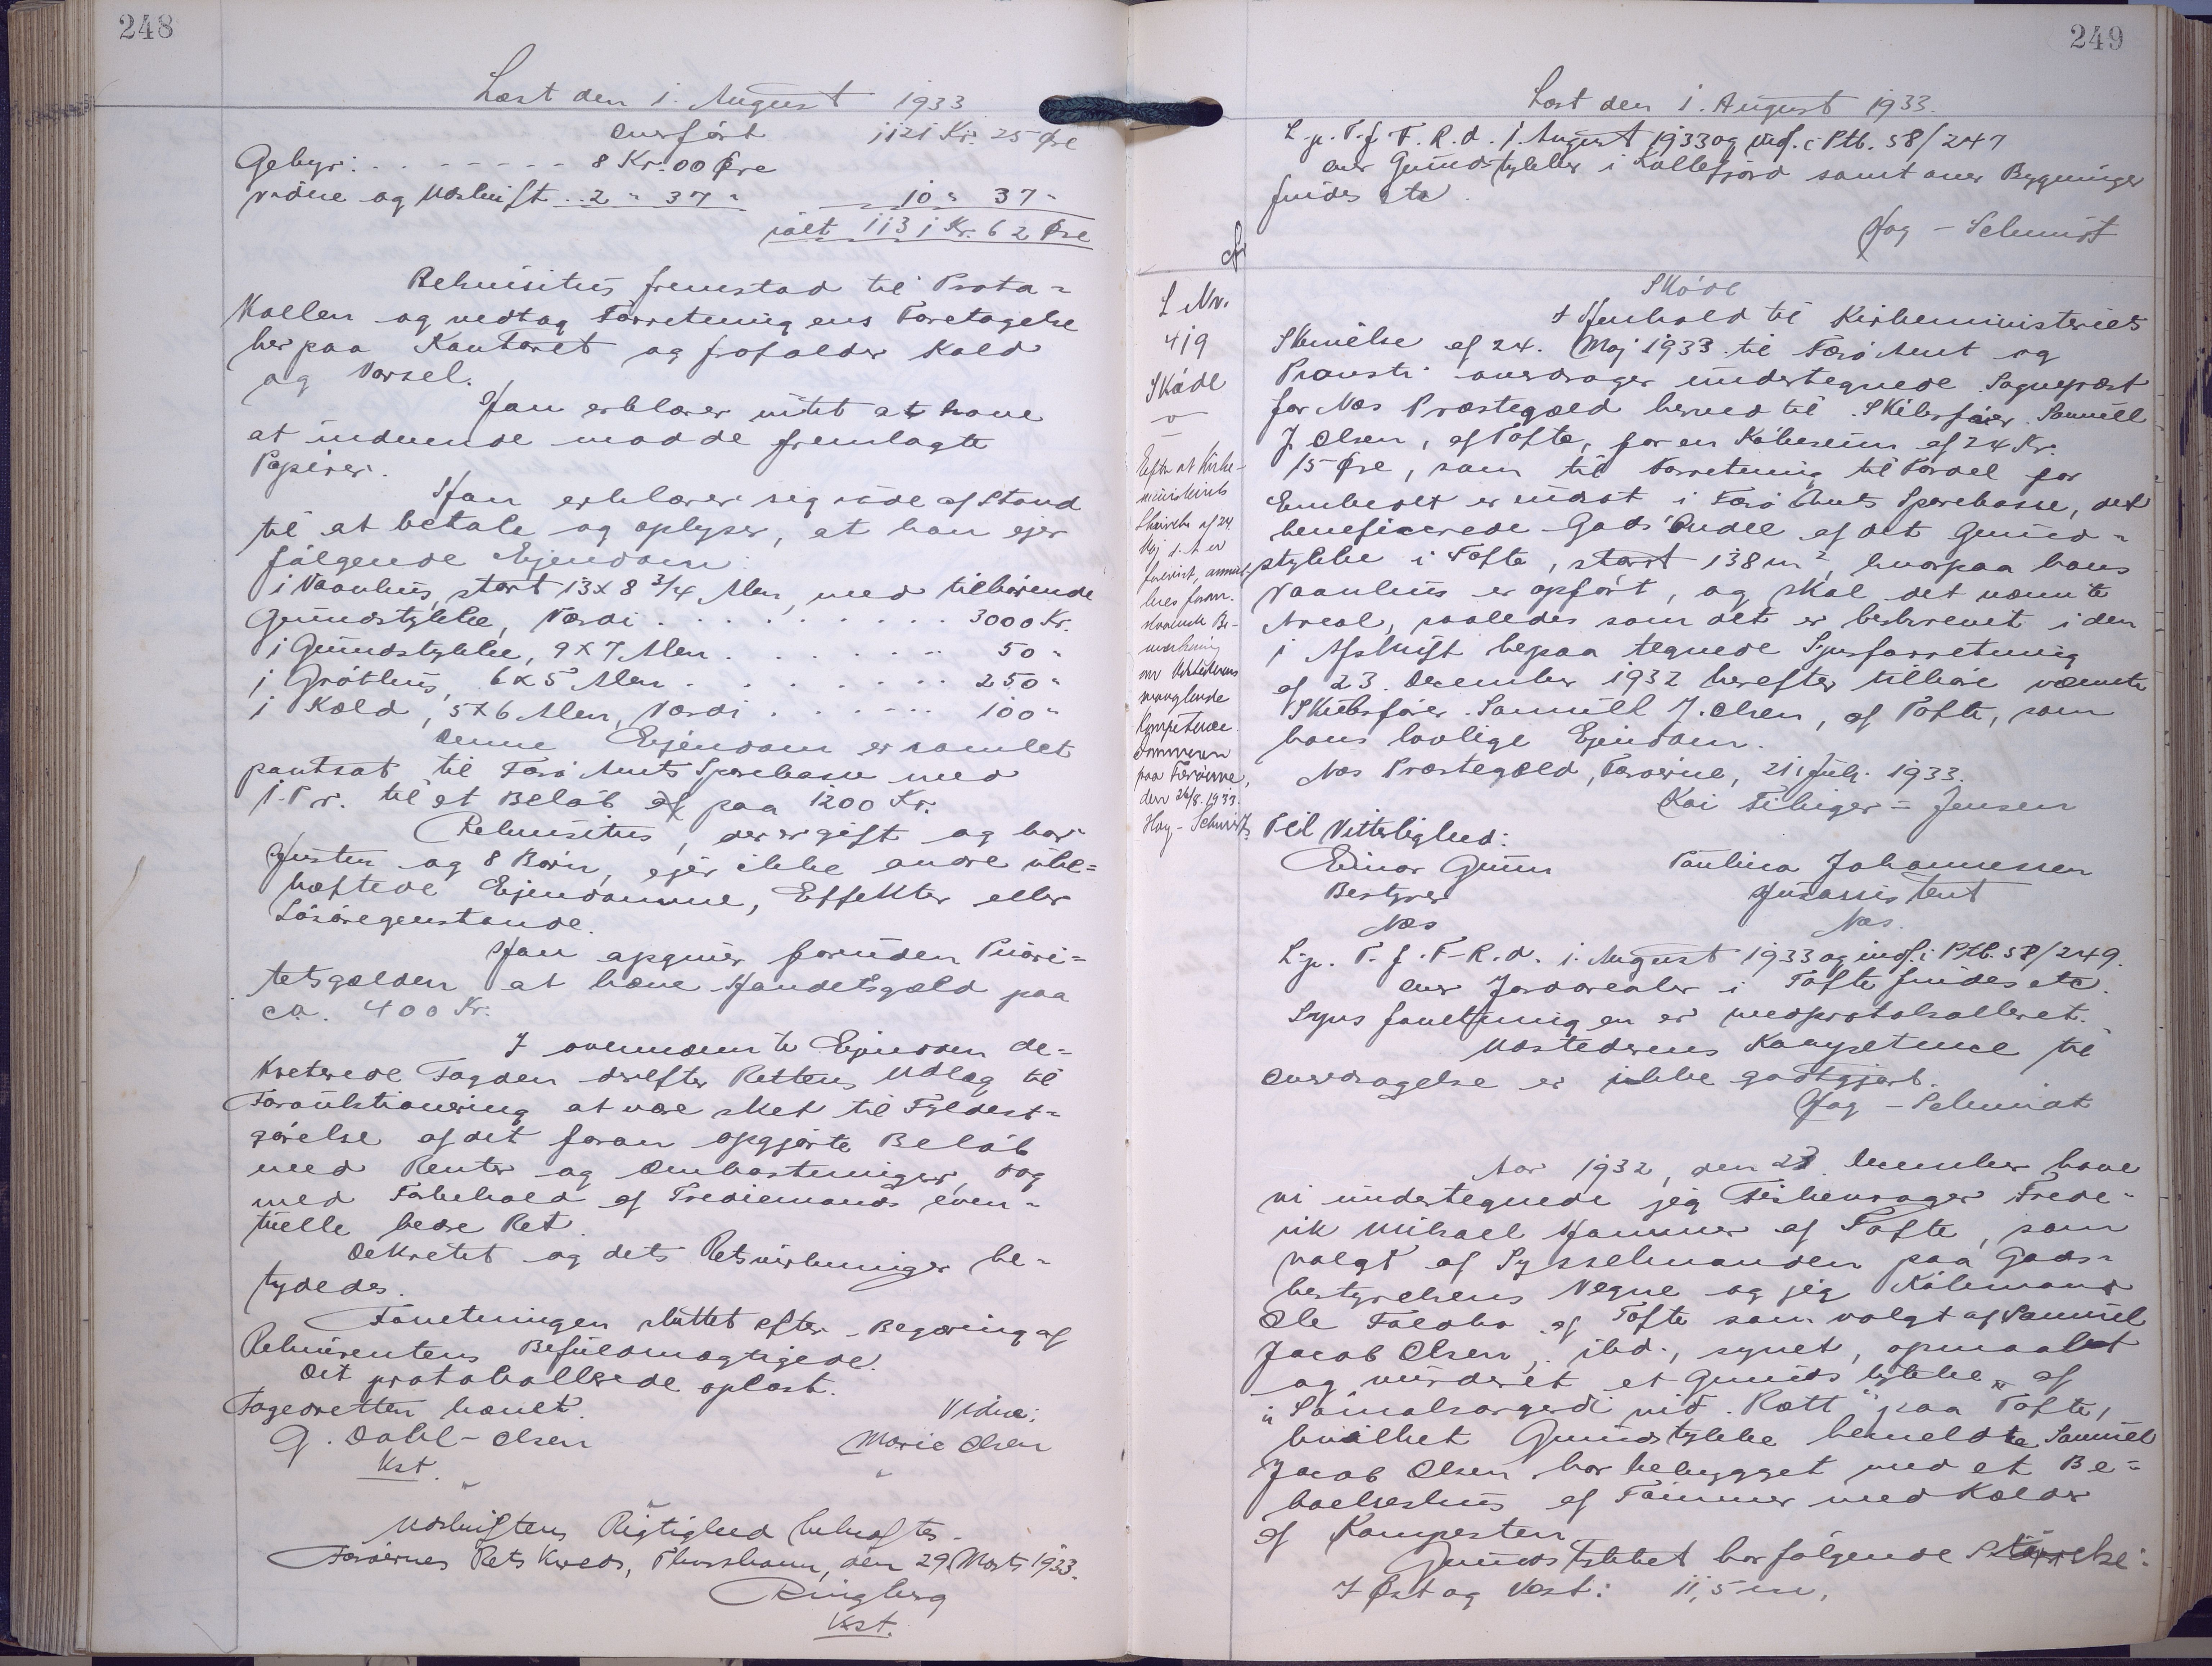 248
Læst den 1. August 1933
Overført 1121 Kr. 25 Øre
Gebyr: . . - - - - - - 8 Kr. 00 Øre
Vidne og Udskrift . . 2 " 37 " 10 " 37 "
ialt 1131 Kr. 62 Øre
Rekvisitus fremstod til Proto=
kollen og vedtog Forretningens Foretagelse
her paa Kontoret og frafalder Kald
og Varsel.
Han erklærer intet at have
at indvende mod de fremlagte
Papirer.
Han erklærer sig ude af Stand
til at betale og oplyser, at han ejer
følgende Ejendom:
1 Vaanhus, stort 13 x 8 3/4 Alen, med tilhørende
Grundstykke, Værdi . . . . . . . . . . 3000 Kr.
1 Grundstykke, 9 x 7 Alen . . . . . . . 50 "
1 Grothus, 6 x 5 Alen . . . . . . . . 250 "
1 Kæld, 5 x 6 Alen, Værdi . . . . . . 100 "
Denne Ejendom er samlet
pantsat til Færø Amts Sparekasse med
1. Pr. til et Beløb af paa 1200 Kr.
Rekvisitus, der er gift og har
Hustru og 8 Børn, ejer ikke andre ube=
hæftede Ejendomme, Effekter eller
Løsøregenstande.
Han opgiver foruden Priori=
tetsgælden at have Handelsgæld paa
ca. 400 Kr.
I ovennævnte Ejendom de=
kreterede Fogden derefter Rettens Udlæg til
Forauktionering at være sket til Fyldest=
gørelse af det foran opgjorte Beløb
med Renter og Omkostninger, dog
med Forbehold af Trediemands even=
tuelle bedre Ret.
Dekretet og dets Retsvirkninger be=
tydedes.
Forretningen sluttet efter Begæring af
Rekvirentens Befuldmægtigede.
Det protokollerede oplæst.
Fogedretten hævet.
Vidne:
G. Dahl-Olsen Marie Olsen
Kst.
Udskriftens Rigtighed bekræftes.
Færøernes Rets Kreds, Thorshavn, den 29 Marts 1933.
Ringberg
Kst.
249
Læst den 1. August 1933.
L. p. T. f. F. R. d. 1. August 1933 og indf. i Ptb. 58/247
Over Grundstykker i Kollefjord samt over Bygninger
findes etc.
Hag - Schmidt
L Nr.
419
Skøde
Efter at Kirke-
ministeriets
Skrivelse af 24
Maj d. A. er
forevist, annul-
leres foran-
staaende Be-
mærkning
om Udstederens
manglende
Kompetence.
Dommeren
paa Færøerne,
den 26/8. 1933.
Hag - Schmidt
Skøde
I Henhold til Kirkeministeriets
Skrivelse af 24. Maj 1933 til Færø Amt og
Provsti overdrager undertegnede Sognepræst
for Næs Præstegæld herved til Skibsfører Samuell
J. Olsen, af Tofte, for en Købesum af 24 Kr.
15 Øre, som til Forretning til Fordel for
Embedet er indsat i Færø Amts Sparekasse, det
beneficerede Gods' Andel af det Grund=
stykke i Tofte, stort 138 m², hvorpaa hans
Vaanhus er opført, og skal det nævnte
Areal, saaledes som det er beskrevet i den
i Afskrift hepaa tegnede Synsforretning
af 23. December 1932 herefter tilhøre nævnte
Skibsfører Samuell J. Olsen, af Tofte, som
hans lovlige Ejendom.
Næs Præstegæld, Færøerne, 21. Juli 1933.
Kai Fibiger = Jensen
Til Vitterlighed:
Einar Gunn Paulina Johannessen
Bestyrer Husassistent
Næs Næs.
L. p. T. f. F. R. d. 1. August 1933 og indf. i Ptb. 58/249.
Over Jordarealer i Tofte findes etc.
Synsforretningen er medprotokolleret.
Udstederens Kompetence til
Overdragelse er ikke godtgjort.
Hag - Schmidt
Aar 1932, den 23. December have
vi undertegnede jeg Fiskevrager Frede-
rik Mikael Hammer af Tofte, som
valgt af Sysselmanden paa Gods=
bestyrelsens Vegne og jeg Købmand
Ole Faldbo af Tofte som valgt af Samuel
Jacob Olsen, ibd., synet, opmaalet
og vurderet et Grundstykke af
" " paa Tofte,
hvilket Grundstykke bemeldte Samuel
Jacob Olsen har bebygget med et Be=
boelseshus af Tømmer med Kælder
af Kampesten.
Grundstykket har følgende Størrelse:
I Øst og Vest: 11,5 m,